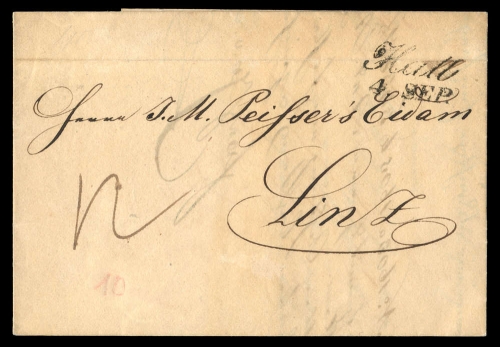 Hall
4. SEP.
Herrn J. M. Peisser's Eidam
Linz
10